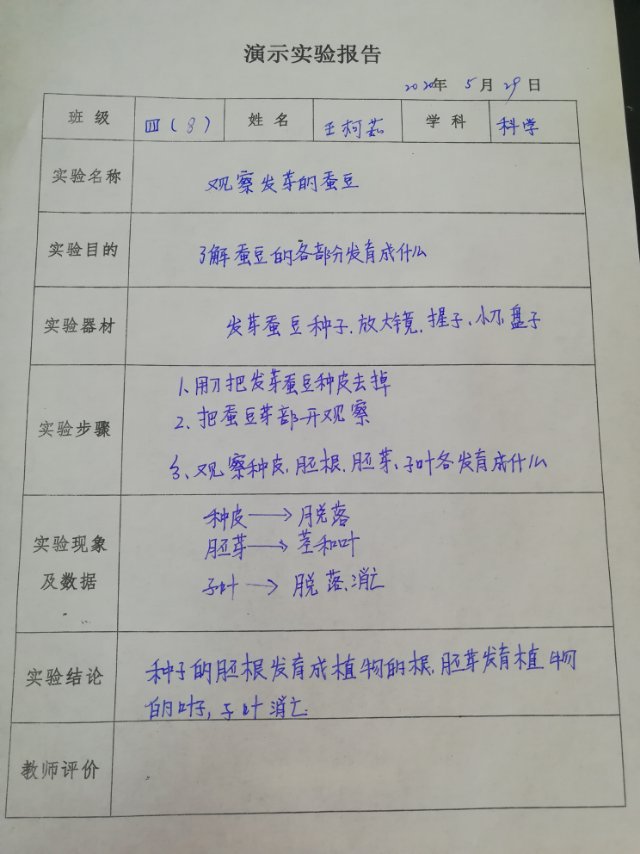 演示实验报告
2020年 5月 29日
班级 四(8) 姓名 王柯茹 学科 科学
实验名称 观察发芽的蚕豆
实验目的 了解蚕豆的各部分发育成什么
实验器材 发芽蚕豆种子.放大镜.握子、小刀.盘子
实验步骤
1、用刀把发芽蚕豆种皮去掉
2、把蚕豆芽部开观察
3、观察种皮.胚根.胚芽、子叶各发育成什么
实验现象及数据
种皮→脱落
胚芽→茎和叶
子叶→脱落.消亡
实验结论
种子的胚根发育成植物的根.胚芽发育植物
的叶子,子叶消亡.
教师评价